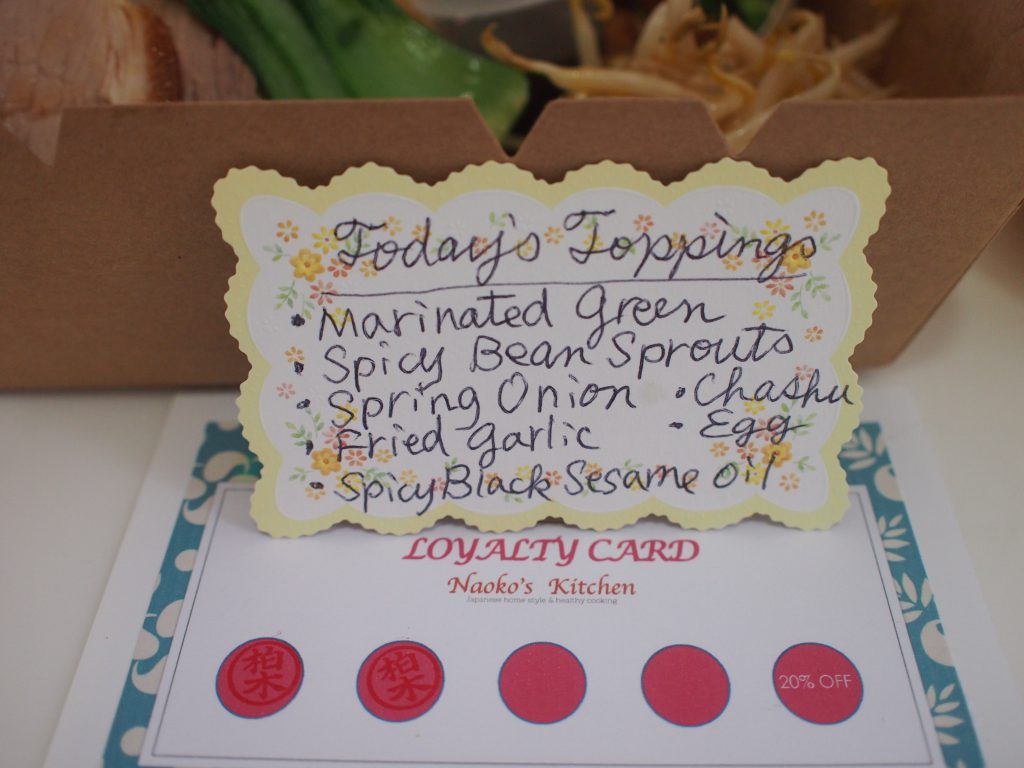 Today's Toppings
• Marinated Green
• Spicy Bean Sprouts
• Spring Onion • Chashu
• Fried garlic • Egg
• Spicy Black Sesame oil
LOYALTY CARD
Naoko's Kitchen
Japanese home style & healthy cooking
柏木 柏木 20% OFF